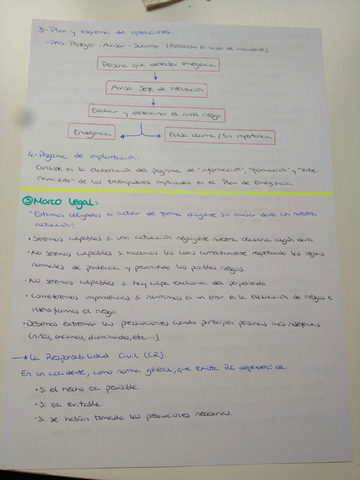 3.- Plan y esquema de operaciones:
- PAS: Proteger - Avisar - Socorrer (Protocolo en caso de accidente).
Persona que detecta emergencia
Avisa Jefe de Intervención
Evaluar y determinar el nivel riesgo
Emergencia
Falsa alarma / Sin importancia
4.- Programa de implantación:
Consiste en la elaboración del programa de "información", "formación" y "entre-
namiento" de los trabajadores implicados en el Plan de Emergencia.
③ Marco Legal:
"Estamos obligados a actuar de forma diligente sin causar daño con nuestra
actuación"
• Seremos culpables si una actuación negligente nuestra ocasiona algún daño.
• No seremos culpables si hacemos las cosas correctamente respetando las reglas
normales de prudencia y previniendo los posibles riesgos.
• No seremos culpables si hay culpa exclusiva del perjudicado
• Cometeremos imprudencias si incurrimos en un error en la evaluación de riesgos e
infravaloramos el riesgo.
• Debemos extremar las precauciones cuando participen personas más indefensas
(niños, ancianos, disminuidos, etc...)
→ La Responsabilidad Civil (RC):
En un accidente, como norma general, que exista RC dependerá de:
• Si el hecho es previsible.
• Si es evitable.
• Si se habían tomado las precauciones necesarias.